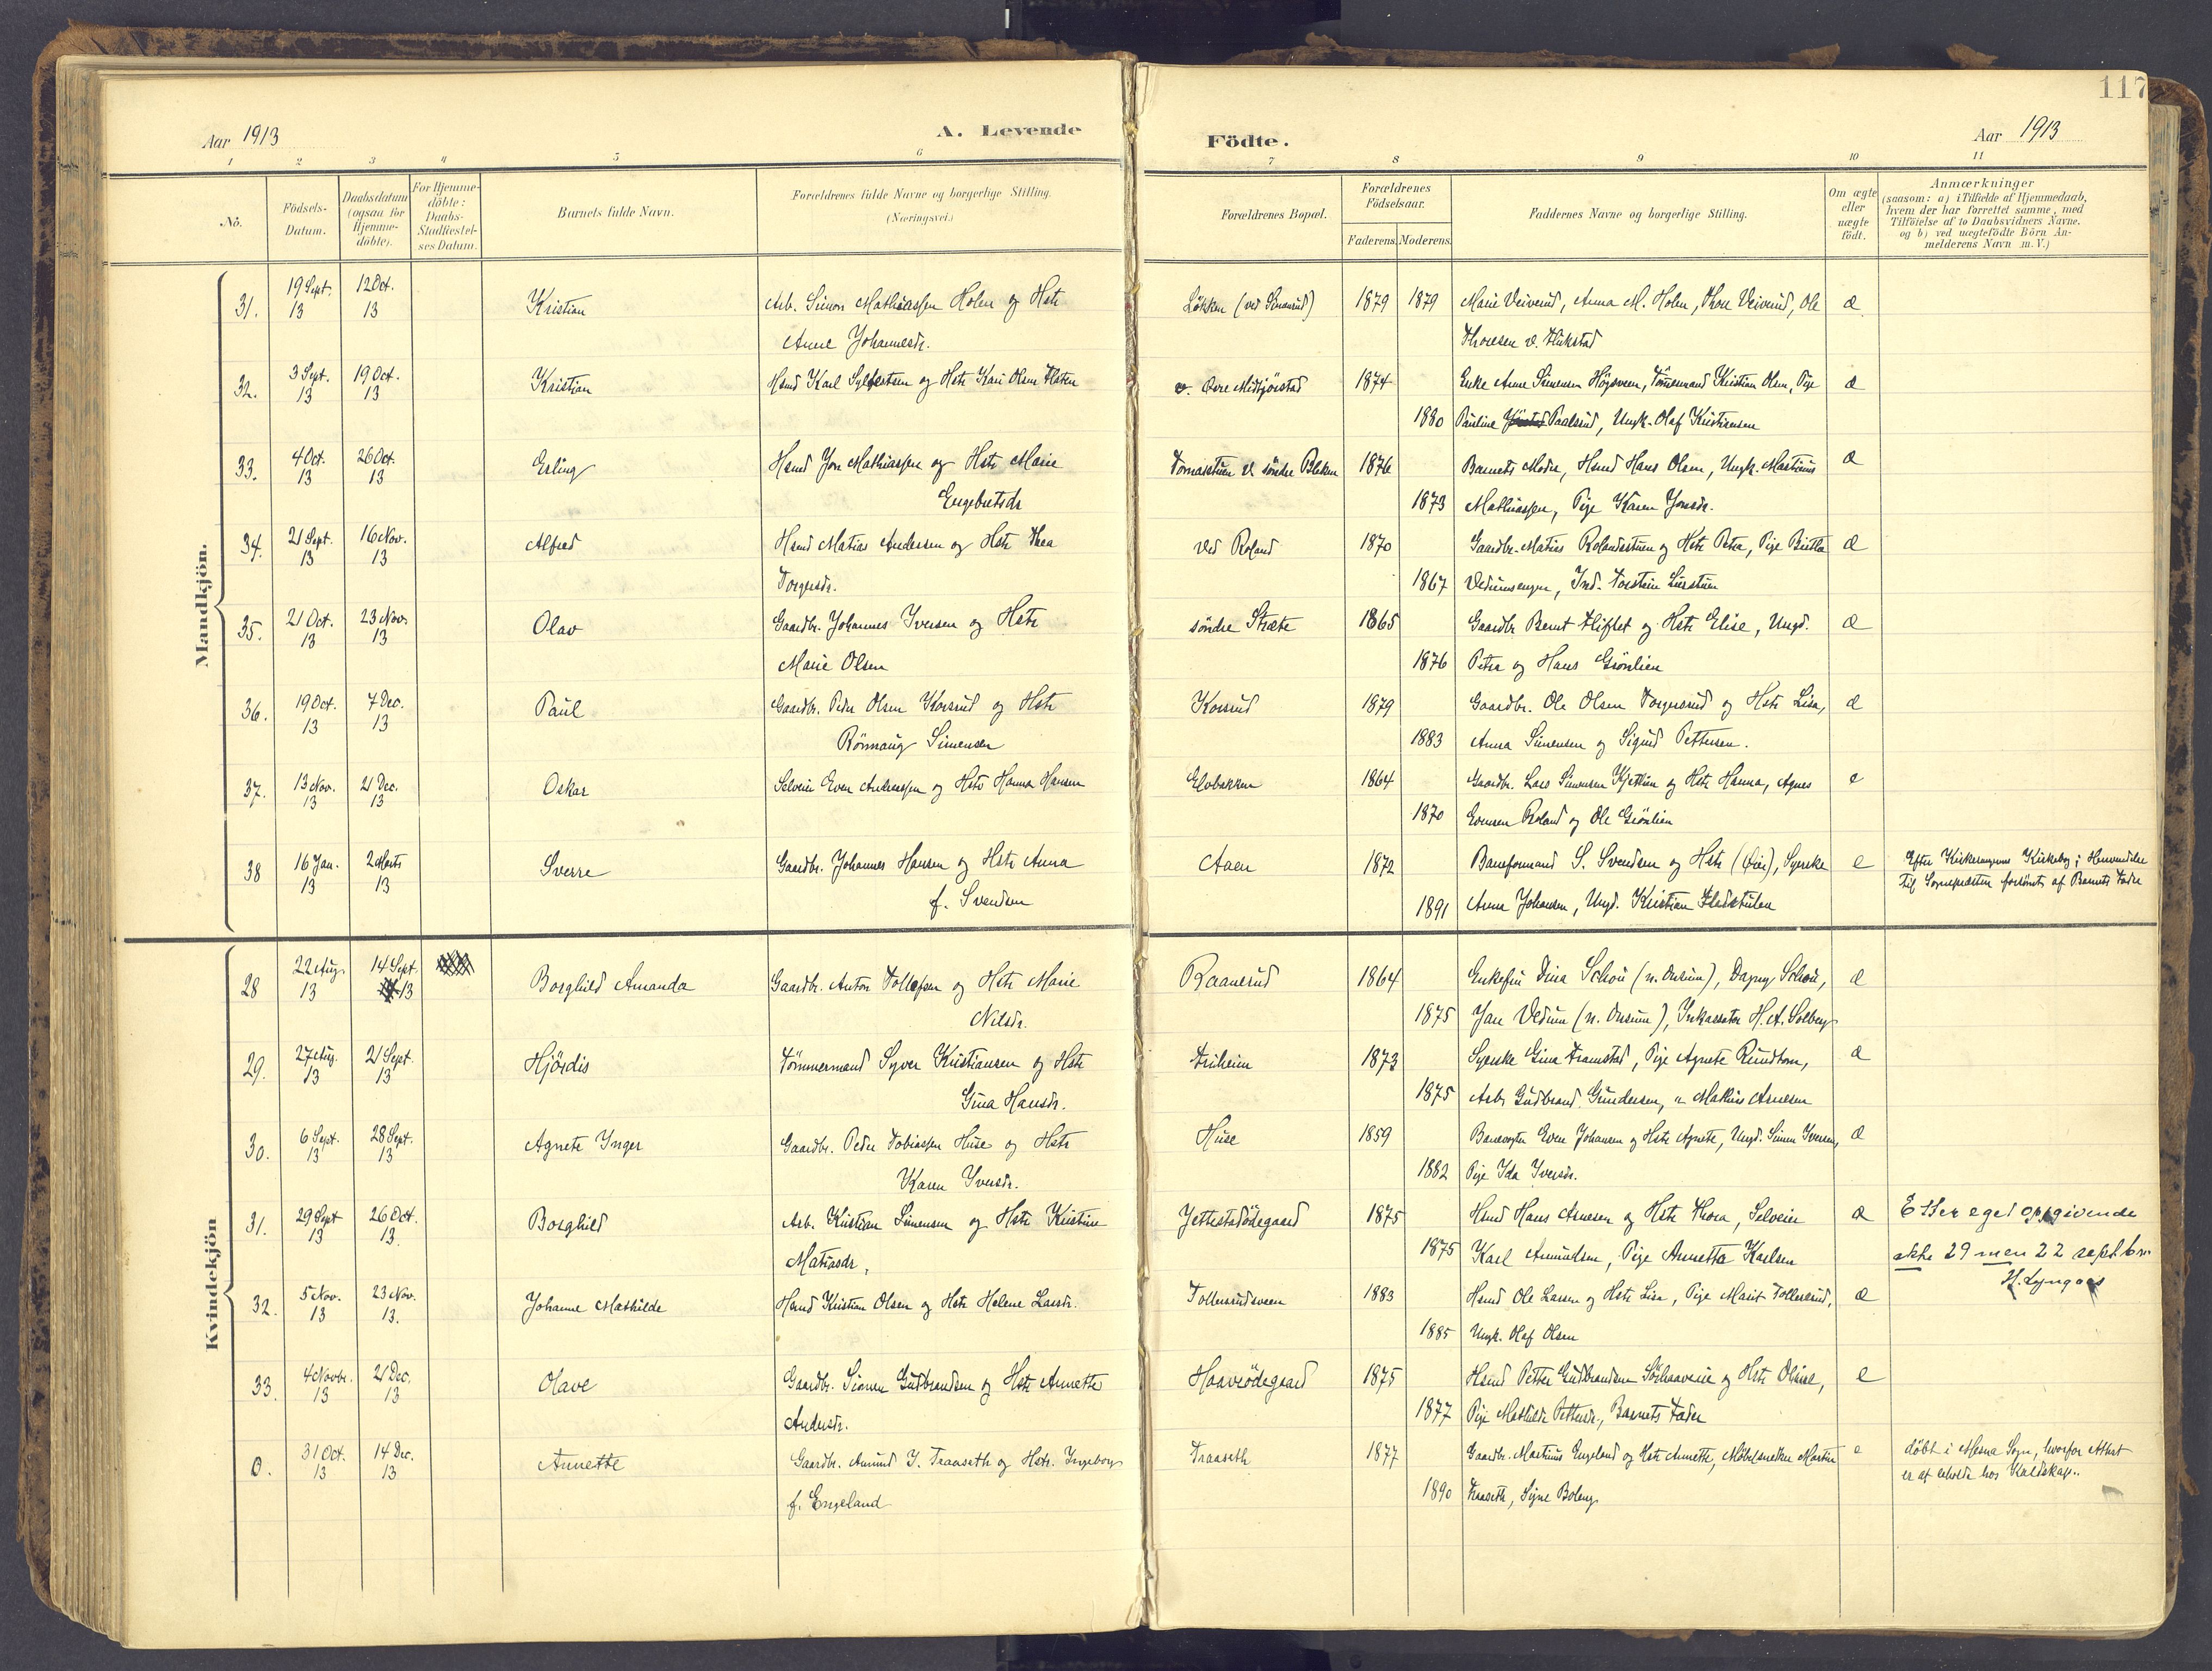 117
Aar 1913
A. Levende
Födte.
Aar 1913
1 2 3 4 5 6 7 8 9 10 11
No.
Födsels-Datum.
Daabsdatum (ogsaa for Hjemme-döbte).
For Hjemme-döbte: Daabs-Stadfæstel-ses Datum.
Barnets fulde Navn.
Forældrenes fulde Navne og borgerlige Stilling. (Næringsvei.)
Forældrenes Bopæl.
Forældrenes Födselsaar.
Faderens. Moderens.
Faddernes Navne og borgerlige Stilling.
Om ægte eller uægte födt.
Anmærkninger
(saasom: a) i Tilfælde af Hjemmedaab,
hvem der har forrettet samme, med
Tilföielse af to Daabsvidners Navne.
og b) ved uægtefödte Börn An-
melderens Navn m. V.)
Mandkjön.
31. 19 Sept. 13 12 Oct. 13 Kristian Arb. Simon Mathiassen Holen og Hstr Løkken 1879 1879 Marie Veiverud, Anna M. Holen, Thore Veiverud, Ole æ
Anne Johannesdr. Thoresen
32. 3 Sept. 13 19 Oct. 13 Kristian Hsmd Karl Sylfestsen og Hstr Kari Olsen v. Øvre Midtjörstad 1874 Enke Anne Simensen Högsveen, Tömmermand Kristian Olsen, Pige æ
1880 Pauline Paalsrud, Ungk. Olaf Kristiansen
33. 4 Oct. 13 26 Oct. 13 Erling Hsmd Jon Mathiassen og Hstr Marie Tomasstuen v. söndre Bleken 1876 Barnets Moder, Hsmd Hans Olsen, Ungk. Martinus æ
Engebretsdr 1873 Mathiassen, Pige Karen Jonsdr.
34. 21 Sept. 13 16 Nov. 13 Alfred Hsmd Matias Andersen og Hstr Thea ved Roland 1870 Gaardbr. Matias Rolandsstuen og Hstr Petra, Pige æ
Torgersdr. 1867 Vedumsengen, Ind. Torstein
35. 21 Oct. 13 23 Nov. 13 Olav Gaardbr. Johannes Iversen og Hstr söndre Stræte 1865 Gaardbr Bernt og Hstr Elise, Ungd. æ
Marie Olsen 1876 Petra og Hans Grönlien
36. 19 Oct. 13 7 Dec. 13 Paul Gaardbr. Peder Olsen Korsrud og Hstr Korsrud 1879 Gaardbr. Ole Olsen Torgersrud og Hstr Lisa, æ
Rönnaug Simensen 1883 Anna Simensen og Sigurd Pettersen.
37. 13 Nov. 13 21 Dec. 13 Oskar Selveier Even Andreassen og Hstr Hanna Hansen Elvbakken 1864 Gaardbr. Lars Simensen og Hstr Hanna, Agnes e
1870 Evensen Roland og Ole Grönlien
38 16 Jan. 13 2 Marts 13 Sverre Gaardbr. Johannes Hansen og Hstr Anna Aaen 1872 Baneformand S. Svendsen og Hstr, Syerske e Efter Kirkesangerens Kirkebog; Henvendelse
til Sognepræsten forsömt af Barnets Fader
f. Svendsen 1891 Anna Johansen, Ungd. Kristian
Kvindekjön
28 22 Aug. 13 14 Sept. 13 Borghild Amanda Gaardbr. Anton Tollefsen og Hstr Marie Raanerud 1864 Enkefru Dina Schou, Dagny Schou, æ
Nilsdr. 1875 Jan Vedum, Inkassator H. A. Solberg
29. 27 Aug. 13 21 Sept. 13 Hjördis Tömmermand Syver Kristiansen og Hstr 1873 Syerske Gina Framstad, Pige Agnete Rundtom, æ
Gina Hansdr. 1875 Arb. Gudbrand Gundersen, " Arnesen
30. 6 Sept. 13 28 Sept. 13 Agnete Inger Gaardbr. Peder Tobiassen Huse og Hstr Huse 1859 Banevogter Even Johansen og Hstr Agnete, Ungd. Simen Iversen, æ
Karen Iversdr. 1882 Pige Ida Iversdr.
31. 29 Sept 13 26 Oct. 13. Borghild Arb. Kristian Simensen og Hstr Kristine Jettestadödegaard 1875 Hsmd Hans Arnesen og Hstr Thora, Selveier æ Efter eget opgivende
Matiasdr. 1875 Karl Amundsen, Pige Annetta Karlsen ikke 29 men 22 septbr.
H. Lyngaas
32. 5 Nov. 13 23 Nov. 13. Johanne Mathilde Hsmd Kristian Olsen og Hstr Helene Larsdr. Tollersrudsveen 1883 Hsmd Ole Larsen og Hstr Lisa, Pige Marit Tollersrud, æ
1885 Ungk. Olaf Olsen
33. 4 Novbr. 13 21 Dec. 13 Olave Gaardbr. Simen Gudbrandsen og Hstr Annette Haaverödegaard 1875 Hsmd Petter Gudbrandsen og Hstr Oline, e
Andersdr. 1877 Pige Mathilde Pettersdr., Barnets Fader
0. 31 Oct. 13 14 Dec. 13 Annette Gaardbr. Amund J. Traaseth og Hstr. Ingeborg Traaseth 1877 Gaardbr. Martinus Engeland og Hstr Annette, Möbelsnedker Martin e döbt i Mesna Sogn, hvorfor Attest
er at erholde hos Kaldskap..
f. Engeland 1890 Traaseth, Signe Boleng